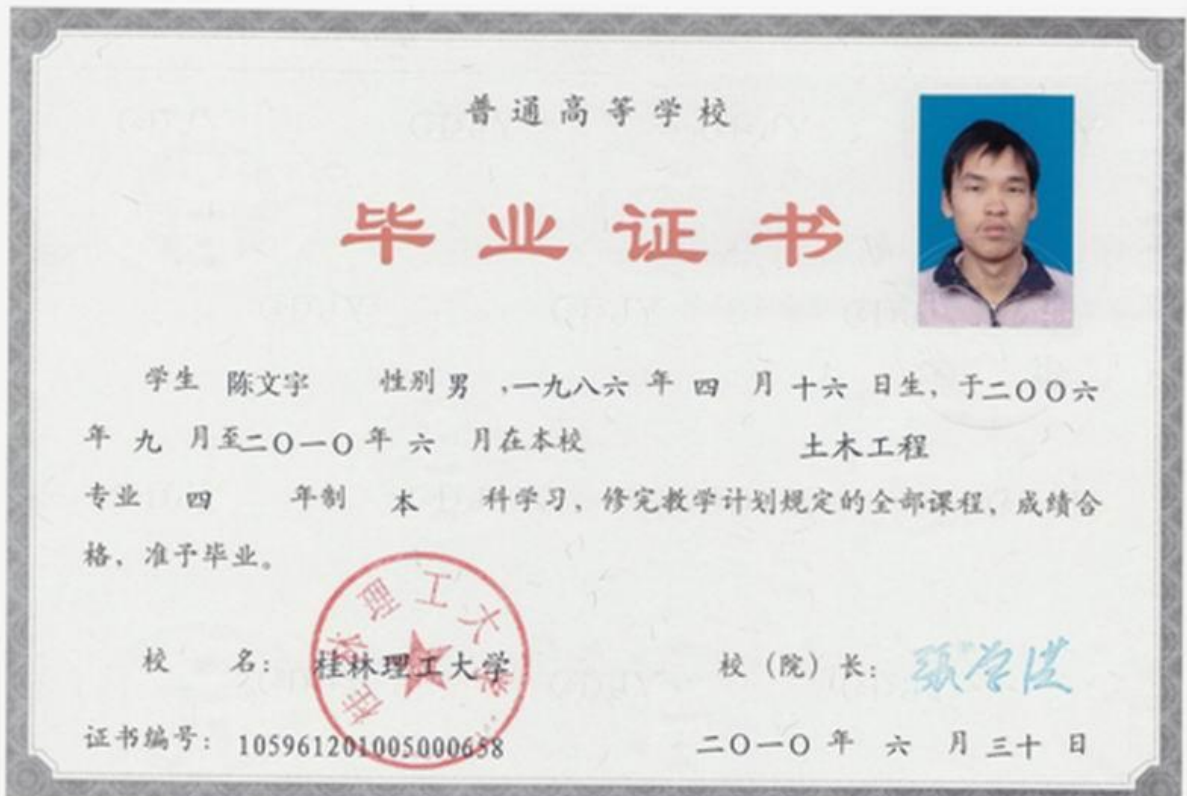 普通高等学校
毕业证书
学生 陈文宇 性别 男 ,一九八六 年 四 月 十六 日生, 于二〇〇六
年 九 月至二〇一〇 年 六 月在本校 土木工程
专业 四 年制 本 科学习, 修完教学计划规定的全部课程, 成绩合
格, 准予毕业。
桂林理工大学
校 名: 桂林理工大学 校 (院) 长: 张学洪
证书编号: 105961201005000658 二〇一〇 年 六 月 三十 日